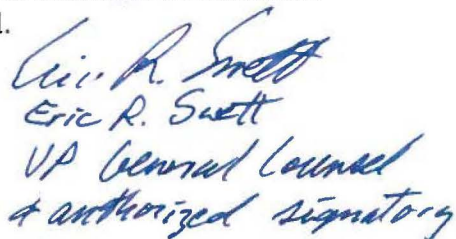 l.
Eric R. Swett
Eric R. Swett
VP General Counsel
& authorized signatory